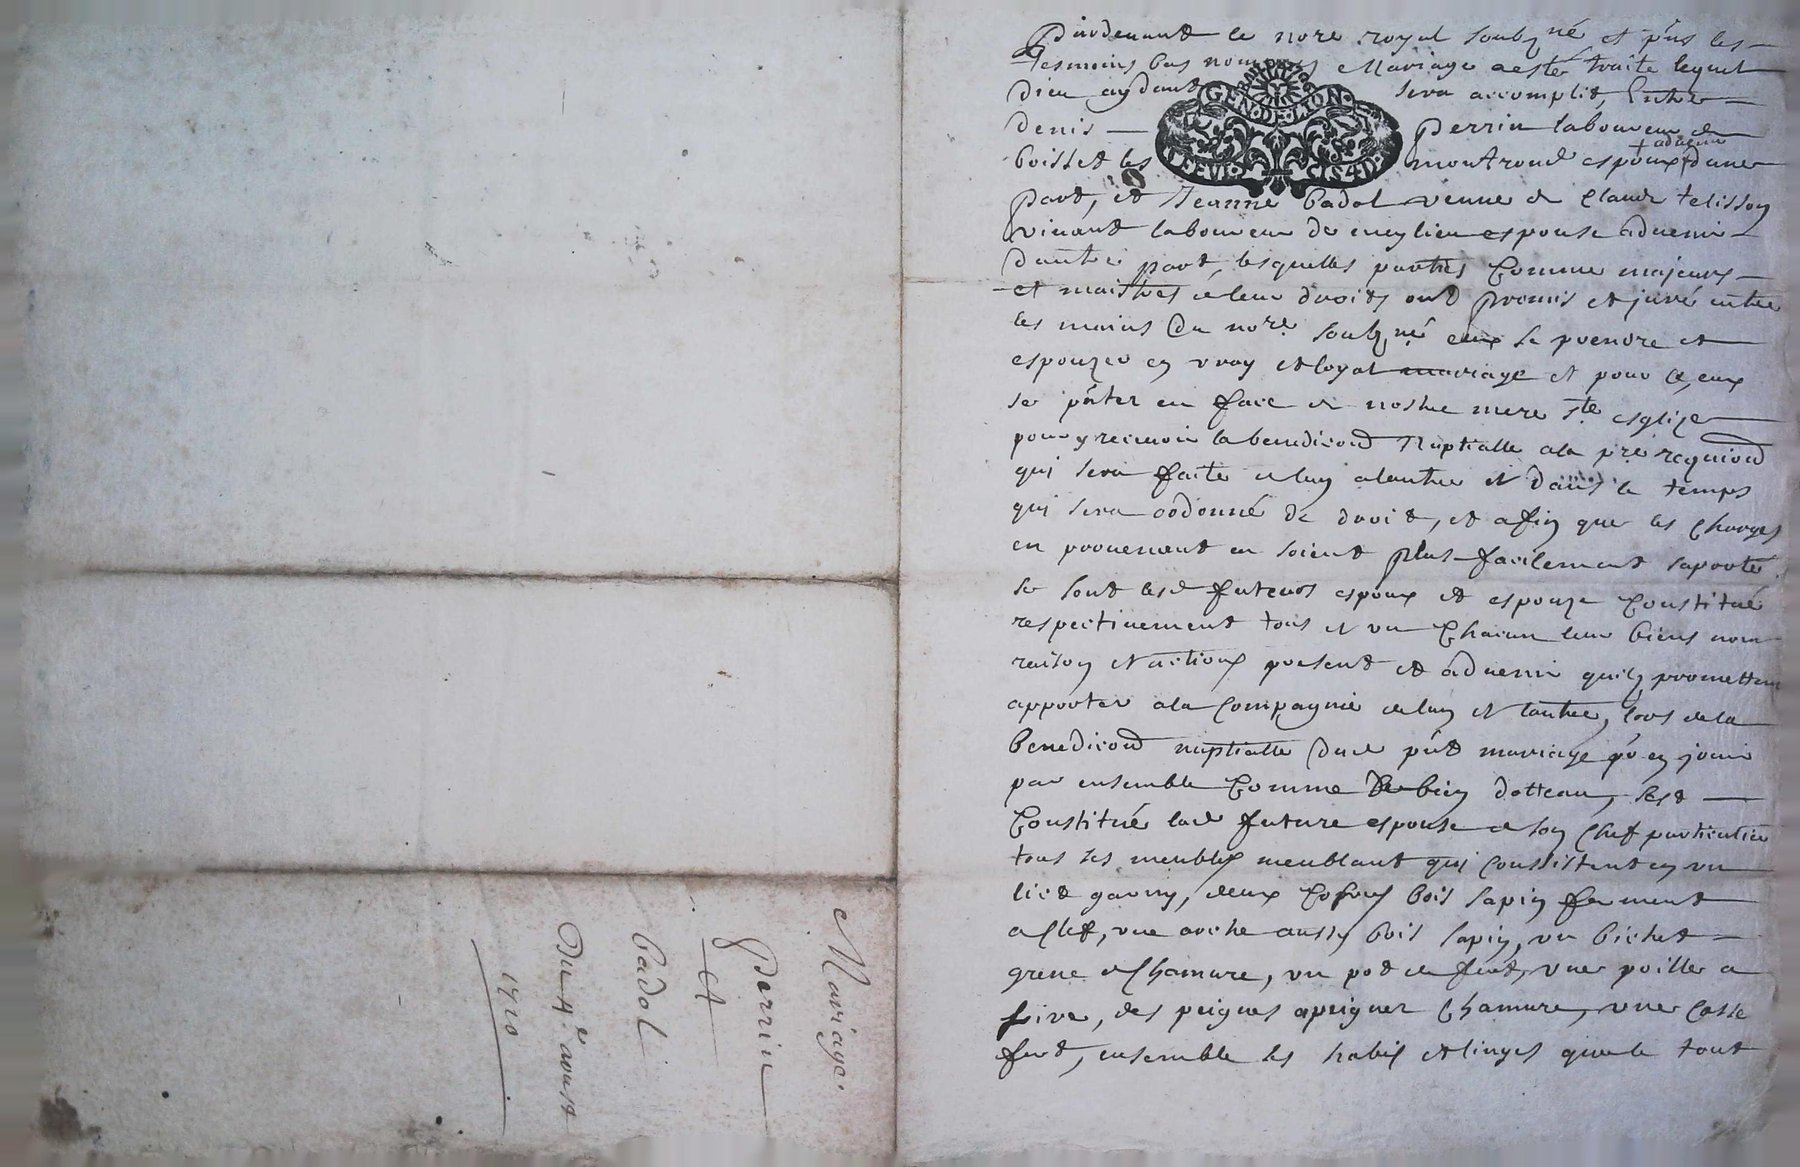 Pardevant le nore royal soubzné et pñs les
tesmoins bas nommés Mariage a esté traite lequel
Dieu aydant sera accomplit, Entre
denis Perrin laboureur de
boisset les montrond espoux + advenir dune
part, et Jeanne badol veuve de Claude telisson
vivant laboureur de espouse advenir
dautre part, lesquelles parties Comme majeurs
et maistres de leur droits ont promis et juré entre
les mains du nore soubzné eux se prendre et
espouzer en vray et loyal mariage et pour ce, eux
se pñter en face de nostre mere ste esglize
pour y recevoir la benediction Nuptialle a la pre requion
qui sera faite de lun a lautre et dans le temps
qui sera ordonné de droit, et afin que les Charges
en provenant en soient plus facilement saporté
se sont lesd futeurs espoux et espouze Constitué
respectivement tous et un Chacun leur biens nom
raison et actions present et advenir quilz promettent
apporter a la Compagnie de lun et lautre, lors de la
benediction nuptialle dud pñt mariage pr en jouir
par ensemble Comme de bien dotteau, sest
Constitué lad future espouse de son Chef particulier
tous ses meubles meublant qui consistent en un
lict garny, deux Cofres bois sapin fermant
a Clef, une arche aussy bois sapin, un bichet
grene de Chamure, un pot de fert, une poille a
frire, des peignes a peigner Chamure, une Casse
fert, ensemble les habis et linges que le tout
GEN·DE·LION
Mariage.
Perrin
et
badol
Du 4e aoust
1710